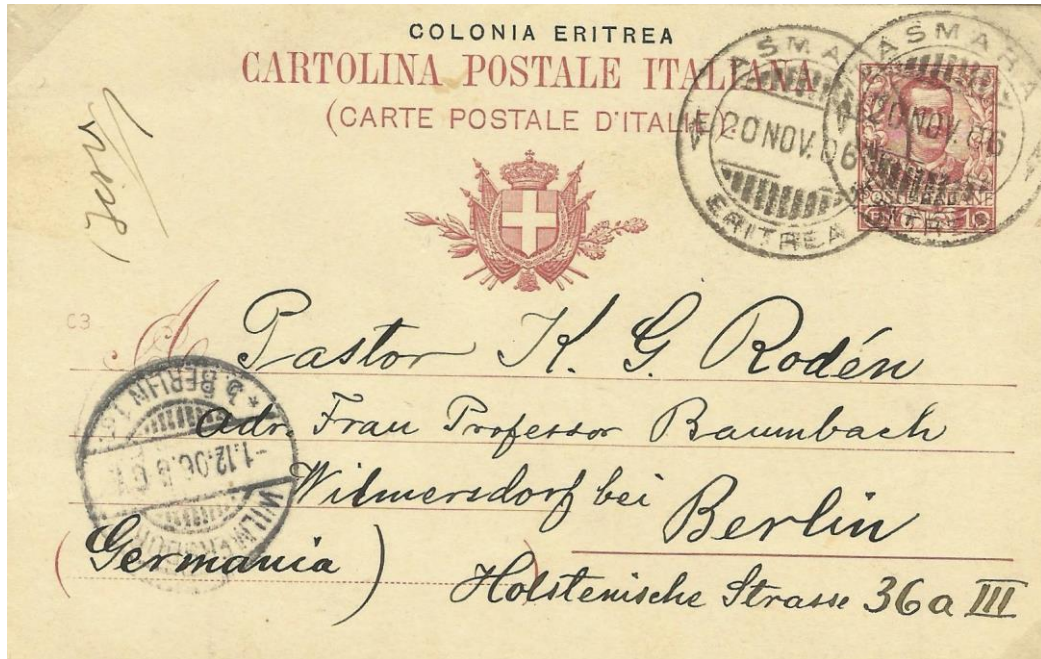 COLONIA ERITREA
CARTOLINA POSTALE ITALIANA
(CARTE POSTALE D'ITALIE)
ASMARA
20 NOV. 06
ERITREA
ASMARA
20 NOV. 06
ERITREA
C3
A Pastor K. G. Rodén
adr. Frau Professor Baumbach
Wilmersdorf bei
Berlin
(Germania)
Holstenische Strasse 36a III
WILMERSDORF
-1.12.06.
BERLIN